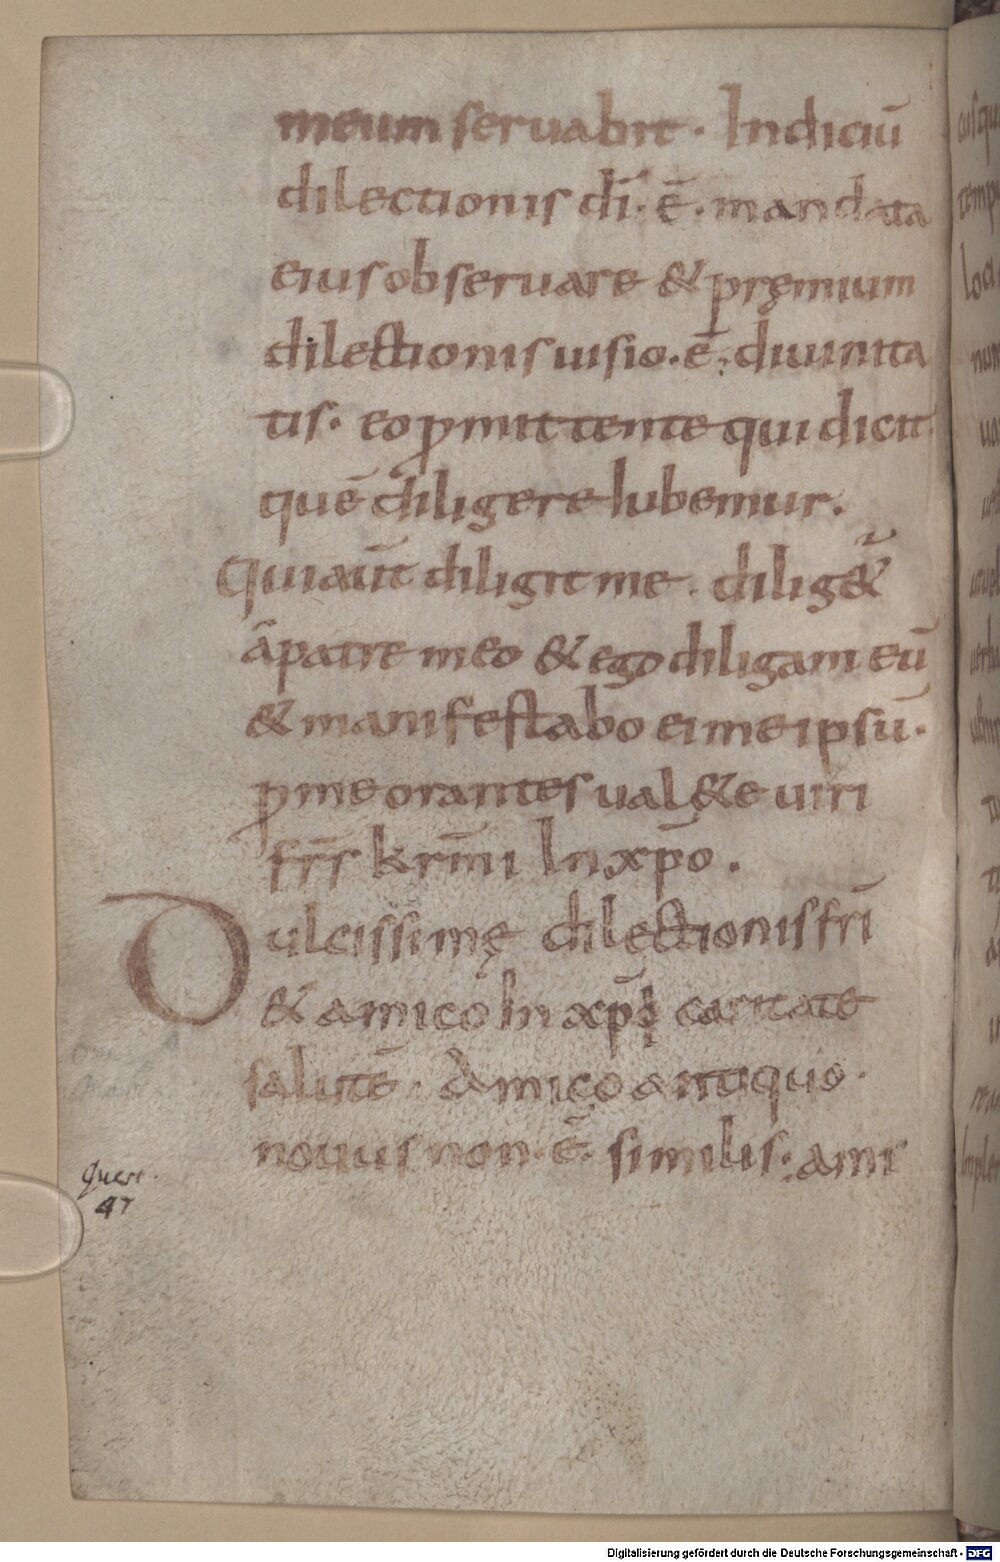 meum seruabit. Indiciū
dilectionis dī. ē. mandata
eius obseruare & pręmium
dilectionis uisio. ē. diuinita
tis. eo ꝓmittente qui dicit.
quē diligere Iubemur.
Qui aūt diligit me. dilig&ur̃
a patre meo & ego diligam eū
& manifestabo ei me ipsū.
ꝓ me orantes ual&e uiri
frr̄s kr̄mi In xp̄o.
Dulcissimę dilectionis frī
& amico In xp̄i caritate
salutē. Amico antiquo.
nouus non. ē. similis. ami
Quere.
47
Digitalisierung gefördert durch die Deutsche Forschungsgemeinschaft - DFG